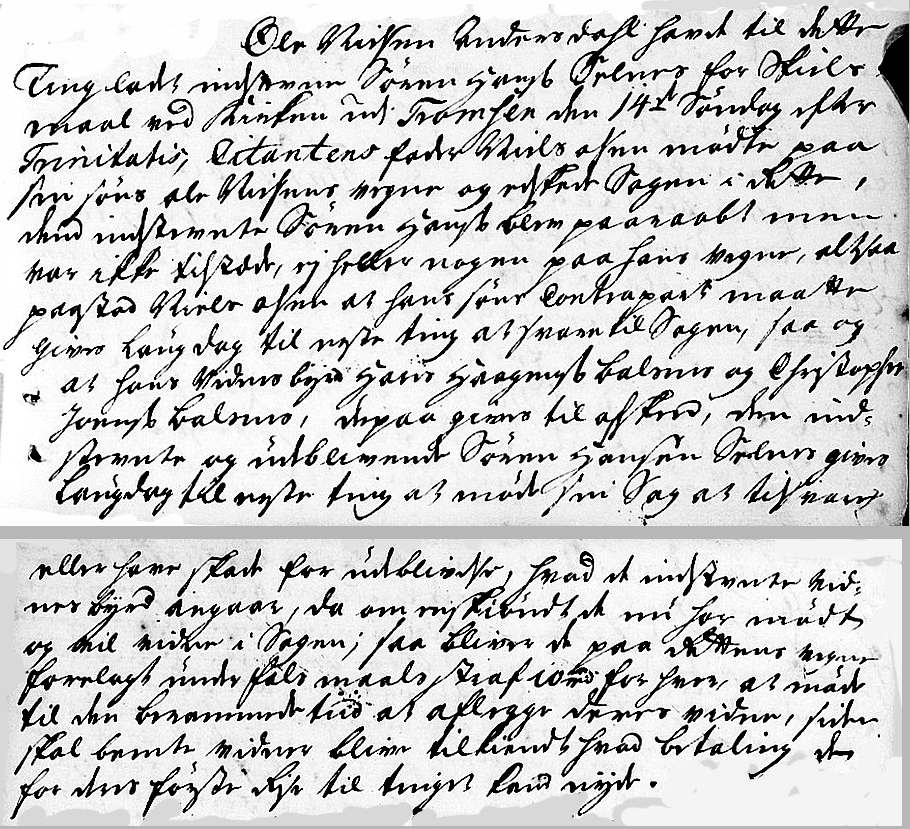 Ole Nielsen Andersdahl havde til dette
Ting ladt indstevne Sören Hansß Selnes for Skiels-
maal ved Kirken udi Tromsöen den 14de Söndag efter
Trinitatis, Citantens fader Niels olsen mödte paa
sin söns ole Nielsens vegne og eskede Sagen i Rette,
dend indstevnte Sören Hansß blev paaraabt men
var ikke tilstæde, ej heller nogen paa hans vegne, altsaa
paastod Niels olsen at hans söns Contrapart maatte
gives Laugdag til neste ting at svare til Sagen, saa og
at hans Vidnesbyrd Hans Haagensß Balsnes og Christopher
Joensß Balsnes, derpaa gives til afskeed, den ind-
stevnte og udeblivende Sören Hansen Selnes gives
Laugdag til neste ting at möde sin Sag at tilsvare
eller have skade for udeblivelse, hvad de indstevnte Vid-
nes byrd angaar, da omenskiöndt de nu har mödt
og vil vidne i Sagen; saa bliver de paa Rettens vegne
forelagt under falsmaals straf for hver, at möde
til den berammede tiid at aflegge deres vidne, siden
skal bemte vidner blive tilkiendt hvad betaling de
for deres förste Rejse til tinget kand nyde.